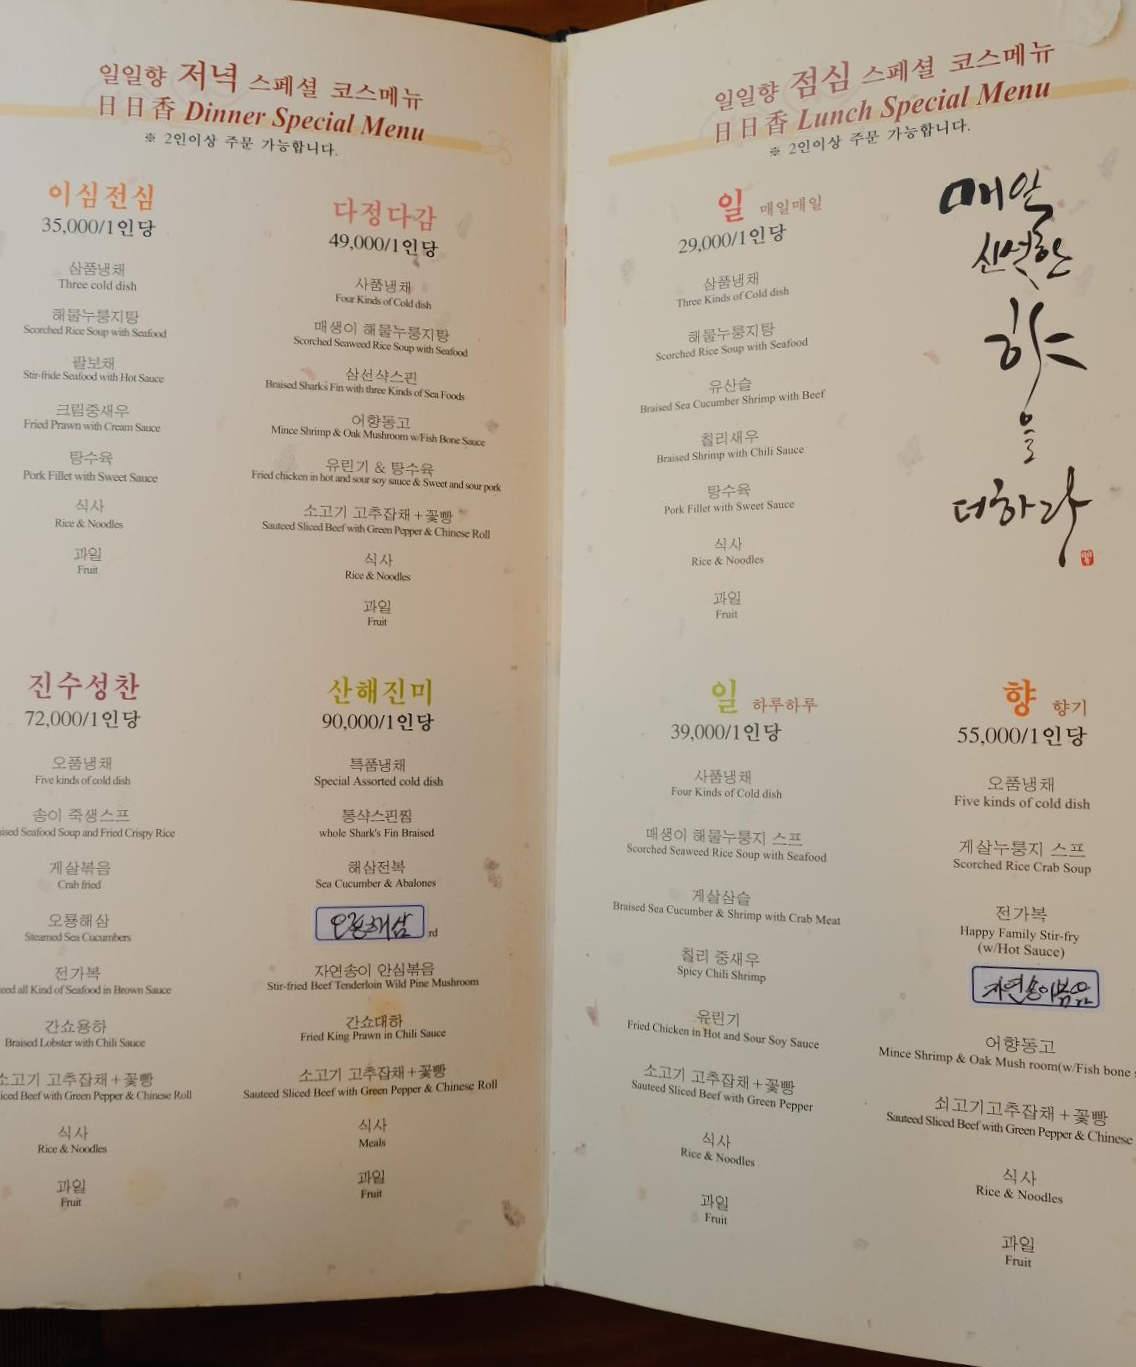 일일향 저녁 스페셜 코스메뉴
日日香 Dinner Special Menu
※ 2인이상 주문 가능합니다.
이심전심
35,000/1인당
삼품냉채
Three cold dish
해물누룽지탕
Scorched Rice Soup with Seafood
팔보채
Stir-fride Seafood with Hot Sauce
크림중새우
Fried Prawn with Cream Sauce
탕수육
Pork Fillet with Sweet Sauce
식사
Rice & Noodles
과일
Fruit
다정다감
49,000/1인당
사품냉채
Four Kinds of Cold dish
매생이 해물누룽지탕
Scorched Seaweed Rice Soup with Seafood
삼선샥스핀
Braised Shark's Fin with three Kinds of Sea Foods
어향동고
Mince Shrimp & Oak Mushroom w/Fish Bone Sauce
유린기 & 탕수육
Fried chicken in hot and sour soy sauce & Sweet and sour pork
소고기 고추잡채+꽃빵
Sauteed Sliced Beef with Green Pepper & Chinese Roll
식사
Rice & Noodles
과일
Fruit
진수성찬
72,000/1인당
오품냉채
Five kinds of cold dish
송이 죽생스프
Seafood Soup and Fried Crispy Rice
게살볶음
Crab fried
오룡해삼
Steamed Sea Cucumbers
전가복
all Kind of Seafood in Brown Sauce
간쇼용하
Braised Lobster with Chili Sauce
소고기 고추잡채+꽃빵
Beef with Green Pepper & Chinese Roll
식사
Rice & Noodles
과일
Fruit
산해진미
90,000/1인당
특품냉채
Special Assorted cold dish
통샥스핀찜
whole Shark's Fin Braised
해삼전복
Sea Cucumber & Abalones
오룡해삼
rd
자연송이 안심볶음
Stir-fried Beef Tenderloin Wild Pine Mushroom
간쇼대하
Fried King Prawn in Chili Sauce
소고기 고추잡채+꽃빵
Sauteed Sliced Beef with Green Pepper & Chinese Roll
식사
Meals
과일
Fruit
일일향 점심 스페셜 코스메뉴
日日香 Lunch Special Menu
※ 2인이상 주문 가능합니다.
일 매일매일
29,000/1인당
삼품냉채
Three Kinds of Cold dish
해물누룽지탕
Scorched Rice Soup with Seafood
유산슬
Braised Sea Cucumber Shrimp with Beef
칠리새우
Braised Shrimp with Chili Sauce
탕수육
Pork Fillet with Sweet Sauce
식사
Rice & Noodles
과일
Fruit
매일
신선한
향
을
더하다
일 하루하루
39,000/1인당
사품냉채
Four Kinds of Cold dish
매생이 해물누룽지 스프
Scorched Seaweed Rice Soup with Seafood
게살삼슬
Braised Sea Cucumber & Shrimp with Crab Meat
칠리 중새우
Spicy Chili Shrimp
유린기
Fried Chicken in Hot and Sour Soy Sauce
소고기 고추잡채+꽃빵
Sauteed Sliced Beef with Green Pepper
식사
Rice & Noodles
과일
Fruit
향 향기
55,000/1인당
오품냉채
Five kinds of cold dish
게살누룽지 스프
Scorched Rice Crab Soup
전가복
Happy Family Stir-fry
(w/Hot Sauce)
자연송이볶음
어향동고
Mince Shrimp & Oak Mush room(w/Fish bone
쇠고기고추잡채+꽃빵
Sauteed Sliced Beef with Green Pepper & Chinese
식사
Rice & Noodles
과일
Fruit